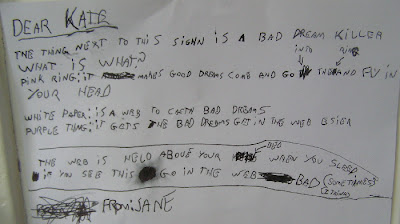 DEAR KATE
THE THING NEXT TO THIS SIGHN IS A BAD DREAM KILLER
WHAT IS WHAT?
INTO RING
PINK RING: IT MAKES GOOD DREAMS COME AND GO AND FLY IN
YOUR HEAD
WHITE PAPER: IS A WEB TO CACTH BAD DREAMS
PURPLE THING: IT GETS THE BAD DREAMS GET IN THE WEB ESIER
BED
THE WEB IS HELD ABOVE YOUR WHEN YOU SLEEP
IF YOU SEE THIS GO IN THE WEB BAD (SOMETIMES)
FROM: SANE